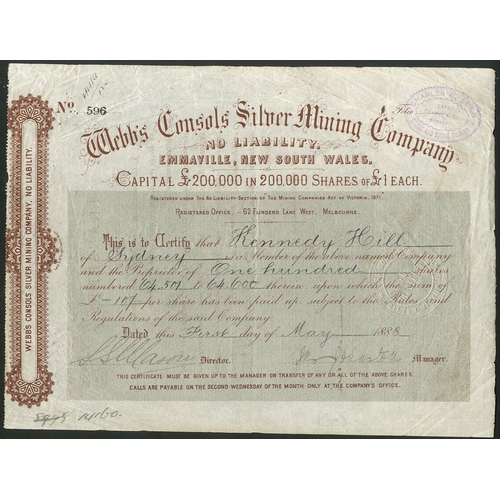 No 596
Folio
Webb's Consols Silver Mining Company
NO LIABILITY.
EMMAVILLE, NEW SOUTH WALES.
CAPITAL £200,000 IN 200,000 SHARES OF £1 EACH.
REGISTERED UNDER THE NO LIABILITY SECTION OF THE MINING COMPANIES ACT OF VICTORIA, 1871.
REGISTERED OFFICE - 62 FLINDERS LANE WEST, MELBOURNE.
This is to Certify that Kennedy Hill
of Sydney is a Member of the above named Company
and the Proprietor of One hundred Shares
numbered 64,501 to 64,600 therein upon which the Sum of
£ -10/- per share has been paid up, subject to the Rules and
Regulations of the said Company.
Dated this First day of May 1888
Director. Manager.
THIS CERTIFICATE MUST BE GIVEN UP TO THE MANAGER ON TRANSFER OF ANY OR ALL OF THE ABOVE SHARES.
CALLS ARE PAYABLE ON THE SECOND WEDNESDAY OF THE MONTH ONLY AT THE COMPANY'S OFFICE.
WEBB'S CONSOLS SILVER MINING COMPANY, NO LIABILITY.